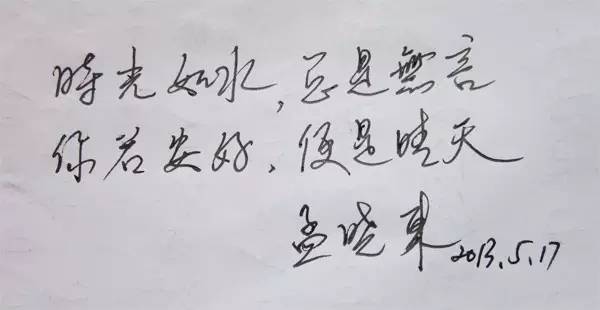 時光如水,总是無言
你若安好,便是晴天
孟晓東 2013.5.17